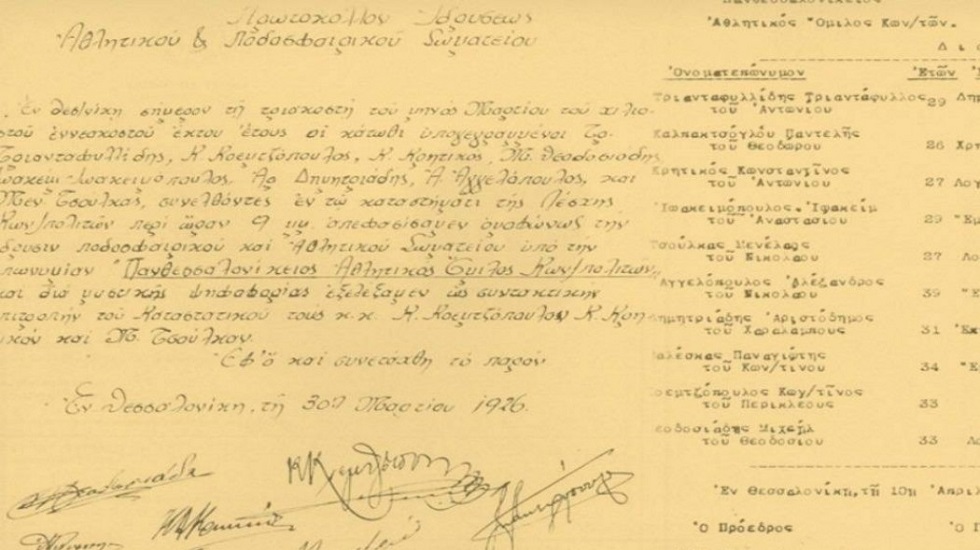 Πρωτόκολλον Ἱδρύσεως
Ἀθλητικοῦ & Ποδοσφαιρικοῦ Σωματείου
Ἐν Θεσ/νίκῃ σήμερον τῇ τριακοστῇ τοῦ μηνὸς Μαρτίου τοῦ χιλιο-
στοῦ ἐννεακοστοῦ ἕκτου ἔτους οἱ κάτωθι ὑπογεγραμμένοι Τρ.
Τριανταφυλλίδης, Κ. Κοεμτζόπουλος, Κ. Κρητικός, Μ. Θεοδοσιάδης
Ἰωακεὶμ Ἰωακειμόπουλος, Ἀρ. Δημητριάδης, Ἀ. Ἀγγελόπουλος, καὶ
Μεν. Τσούλκας, συνελθόντες ἐν τῷ καταστήματι τῆς Λέσχης
Κων/πολιτῶν περὶ ὥραν 9 μμ. ἀπεφασίσαμεν ὁμοφώνως τὴν
ἵδρυσιν ποδοσφαιρικοῦ καὶ Ἀθλητικοῦ Σωματείου ὑπὸ τὴν
ἐπωνυμίαν "Πανθεσσαλονίκειος Ἀθλητικὸς Ὅμιλος Κων/πολιτῶν"
καὶ διὰ μυστικῆς ψηφοφορίας ἐξελέξαμεν ὡς συντακτικὴν
ἐπιτροπὴν τοῦ Καταστατικοῦ τοὺς κ.κ. Κ. Κοεμτζόπουλον Κ. Κρη-
τικὸν καὶ Μ. Τσούλκαν.
Ἐφ' ᾧ καὶ συνετάχθη τὸ παρὸν
Ἐν Θεσσαλονίκῃ, τῇ 30ῃ Μαρτίου 1926.
Ἀθλητικός Ὅμιλος Κων/τῶν.
Ὀνοματεπώνυμον Ἐτῶν
Τριανταφυλλίδης Τριαντάφυλλος 29
τοῦ Ἀντωνίου
Καλπακτσόγλου Παντελῆς 26
τοῦ Θεοδώρου
Κρητικός Κωνσταντῖνος 27
τοῦ Ἀντωνίου
Ἰωακειμόπουλος Ἰωακείμ 29
τοῦ Ἀναστασίου
Τσούλκας Μενέλαος 27
τοῦ Νικολάου
Ἀγγελόπουλος Ἀλέξανδρος 39
τοῦ Νικολάου
ημητριάδης Ἀριστόδημος 31
τοῦ Χαραλάμπους
αλέσκας Παναγιώτης 34
τοῦ Κων/τίνου
οεμτζόπουλος Κων/τῖνος 33
τοῦ Περικλέους
εοδοσιάδης Μιχαήλ 33
τοῦ Θεοδοσίου
Ἐν Θεσσαλονίκῃ, τῇ 10ῃ Ἀπριλ
Ὁ Πρόεδρος